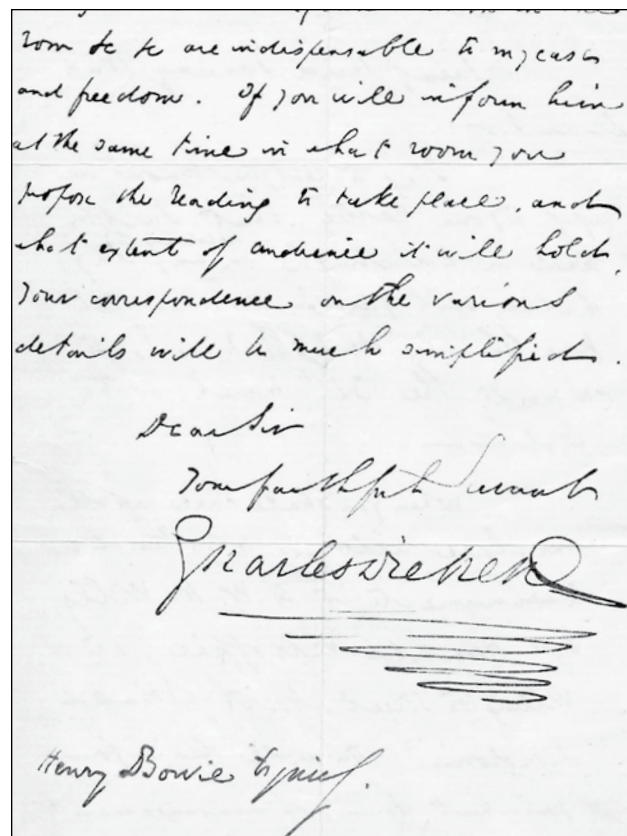 room &c &c are indispensable to my ease
and freedom. If you will inform him
at the same time in what room you
propose the reading to take place, and
what extent of audience it will hold,
your correspondence on the various
details will be much simplified.
Dear Sir
Your faithful Servant
Charles Dickens
Henry Bowie Esquire.